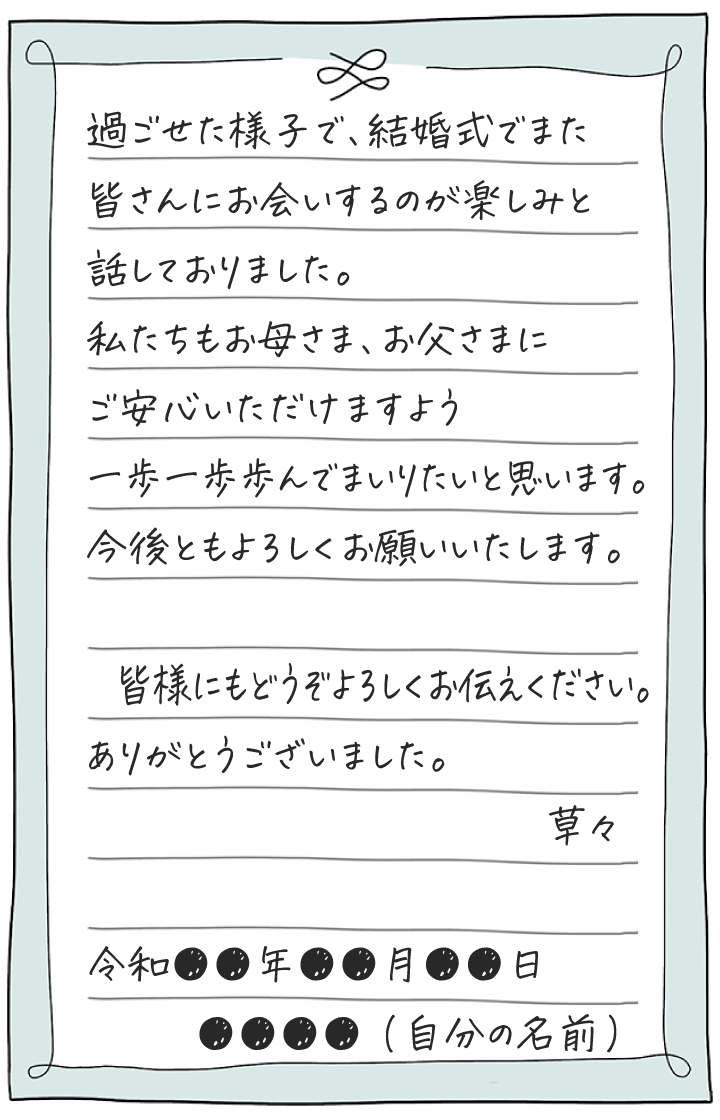 過ごせた様子で、結婚式でまた
皆さんにお会いするのが楽しみと
話しておりました。
私たちもお母さま、お父さまに
ご安心いただけますよう
一歩一歩歩んでまいりたいと思います。
今後ともよろしくお願いいたします。
皆様にもどうぞよろしくお伝えください。
ありがとうございました。
草々
令和●●年●●月●●日
●●●●（自分の名前）